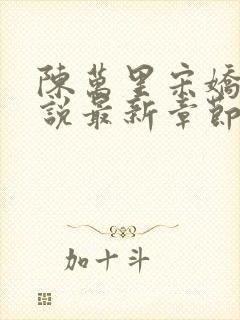 陳萬里宋嬌
說最新章節
加十斗